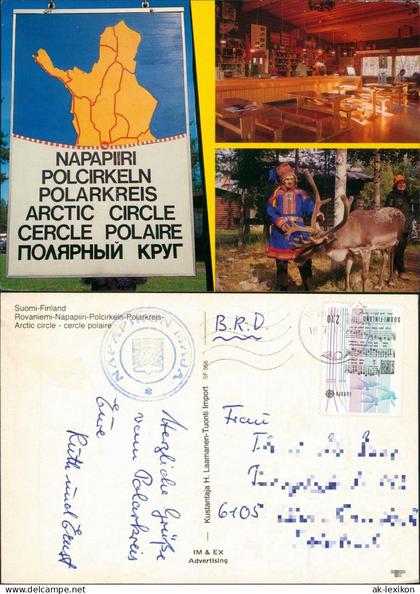 NAPAPIIRI
POLCIRKELN
POLARKREIS
ARCTIC CIRCLE
CERCLE POLAIRE
ПОЛЯРНЫЙ КРУГ
Suomi-Finland
Rovaniemi-Napapiiri-Polcirkeln-Polarkreis-
Arctic circle - cercle polaire
NAPAPIIRIN MAJA
B.R.D.
SUOMI-FINLAND
2,10
EUROPA
Herzliche Grüße
vom Polarkreis
Eure
Ruth und Ernst
Kustantaja H. Laamanen-Tuonti Import SF 966
Frau
6105
IM & EX
Advertising
ak-lexikon.de